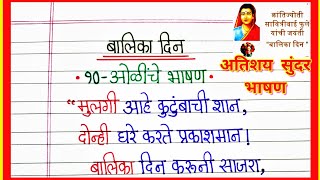 बालिका दिन
क्रांतिज्योती
सावित्रीबाई फुले
यांची जयंती
"बालिका दिन"
अतिशय सुंदर
भाषण
• १०-ओळींचे भाषण •
"मुलगी आहे कुटुंबाची शान,
दोन्ही घरे करते प्रकाशमान!
बालिका दिन करूनी साजरा,